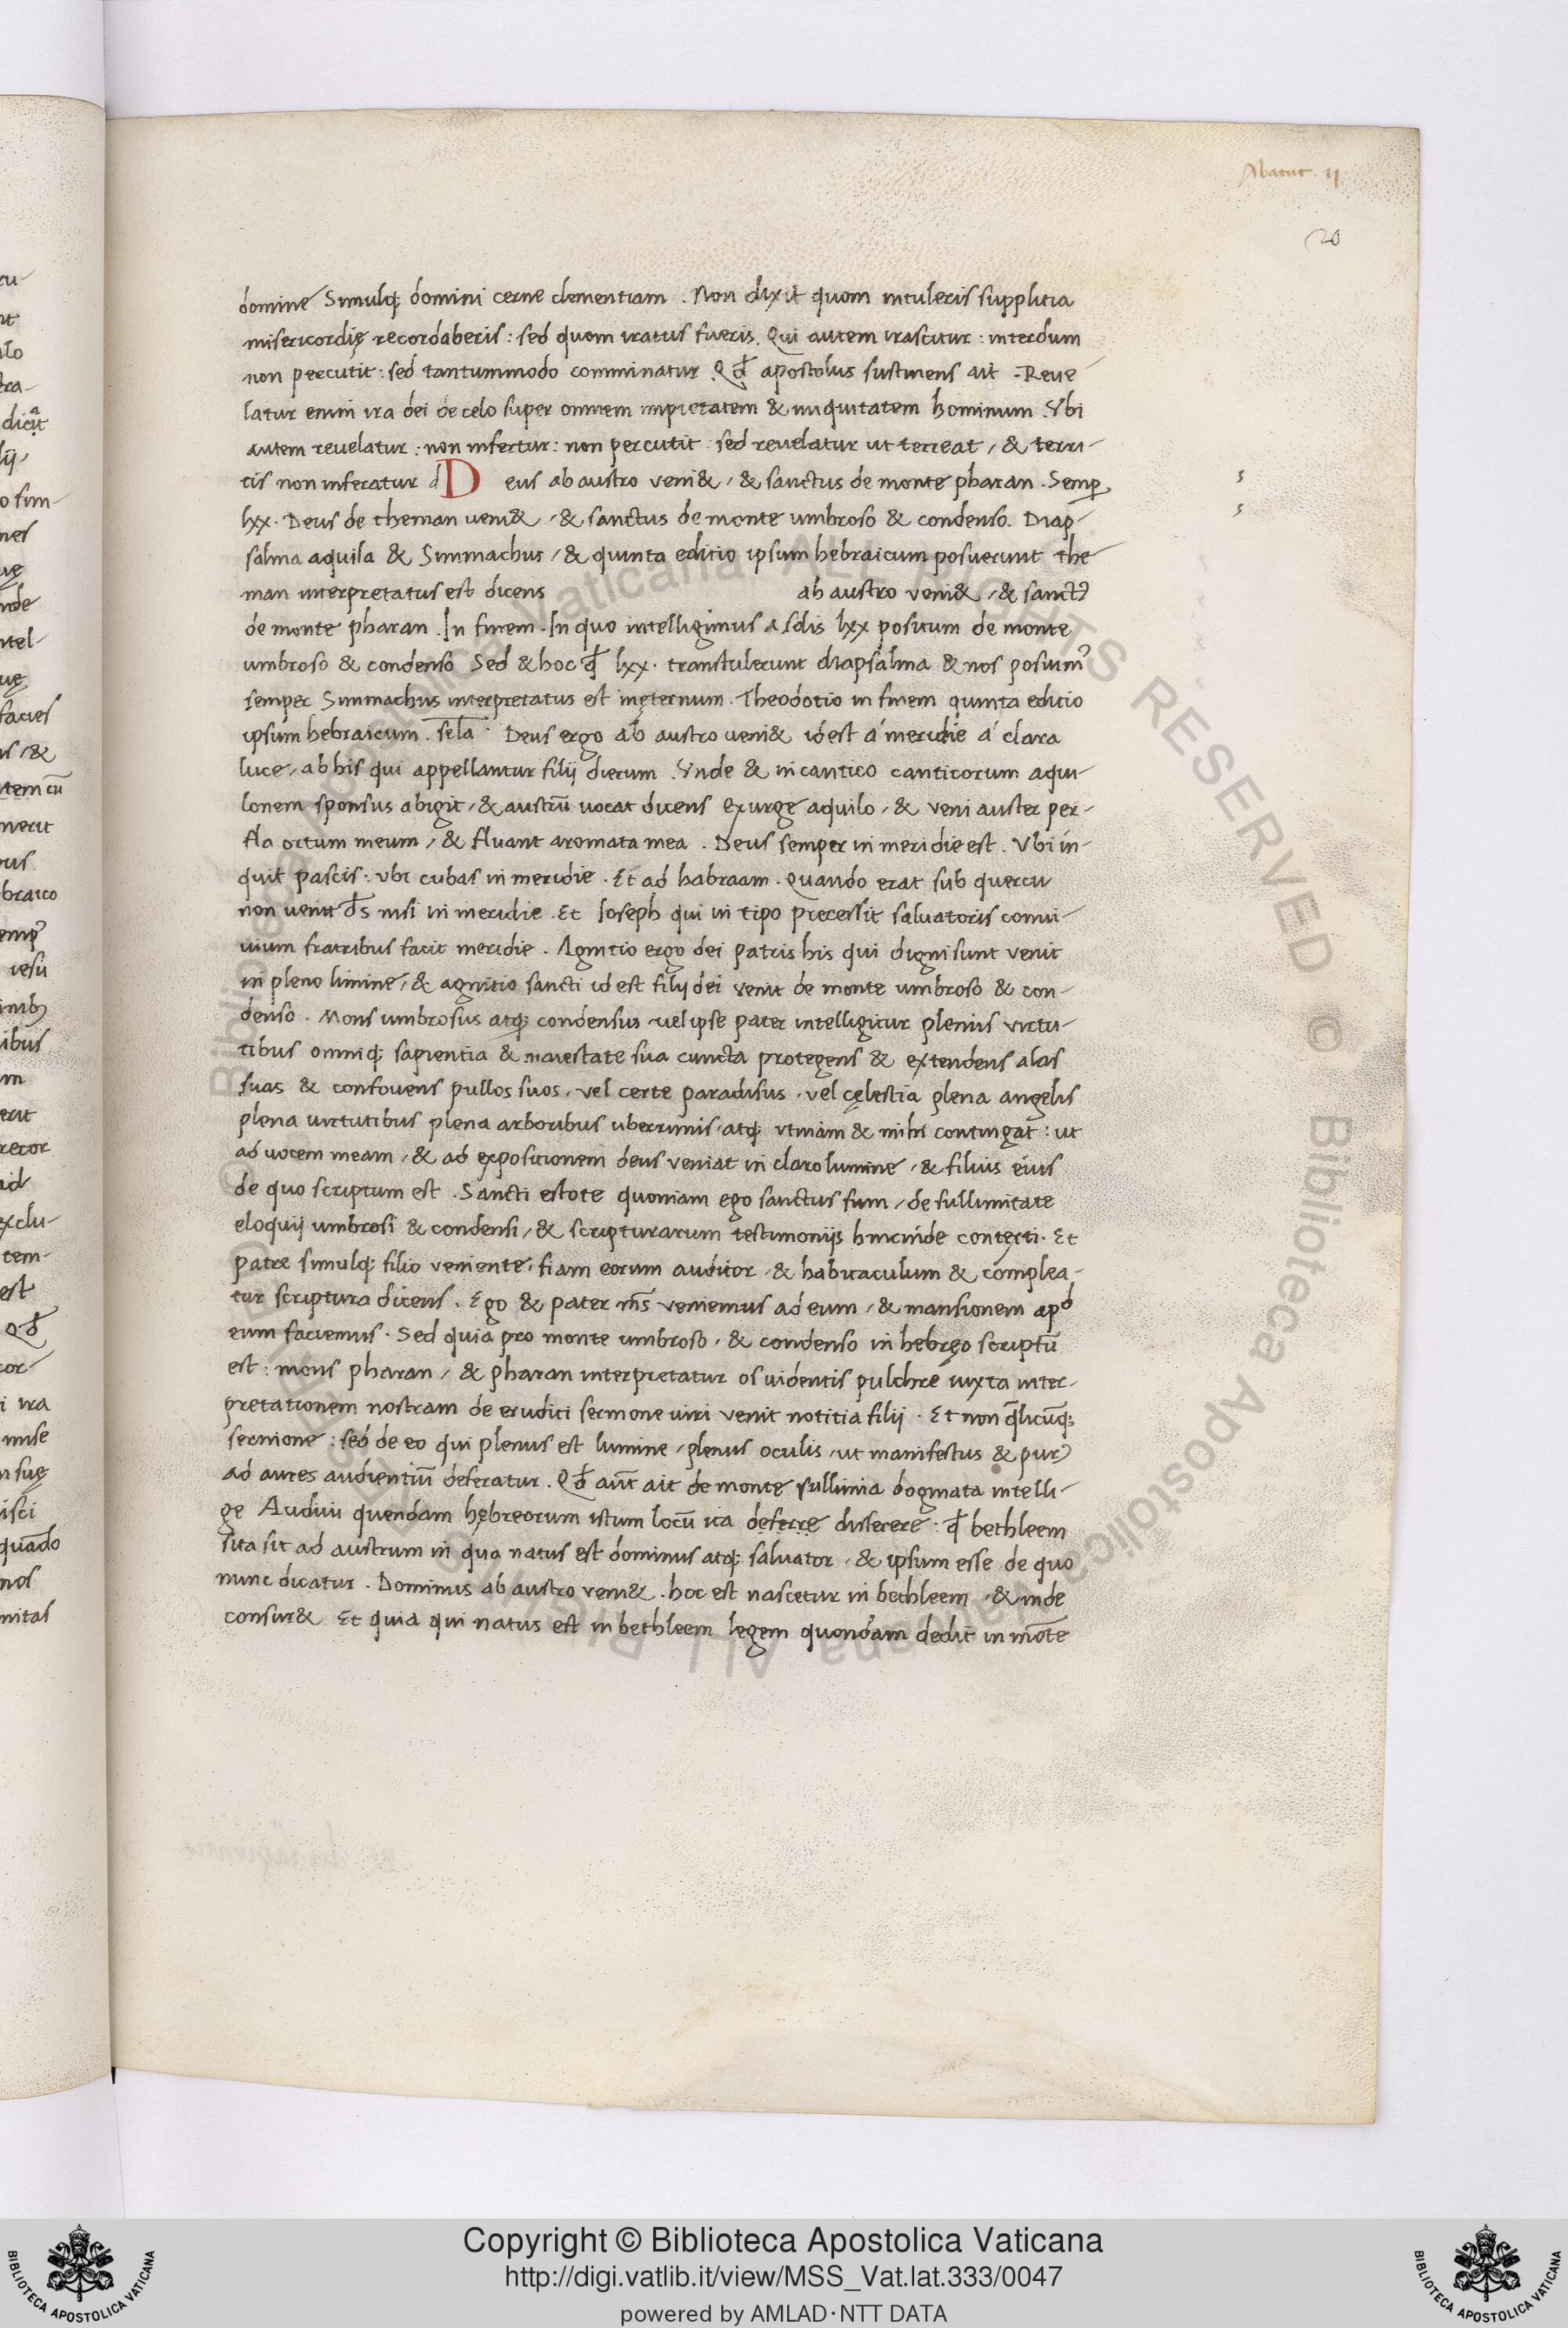 Abacuc. ii
20
domine Simulq; domini cerne clementiam . Non dixit quom intuleris supplitia
misericordię recordaberis : sed quom iratus fueris . Qui autem irascitur : interdum
non percutit : sed tantummodo comminatur . Qđ apostolus sustinens ait . Reue
latur enim ira dei de celo super omnem impietatem & iniquitatem hominum . Vbi
autem reuelatur : non infertur : non percutit : sed reuelatur ut terreat / & terri-
tis non inferatur d Deus ab austro veni& / & sanctus de monte pharan . Semꝑ
lxx . Deus de theman ueni& / & sanctus de monte umbroso & condenso . Diap-
salma aquila & Simmachus / & quinta editio ipsum hebraicum posuerunt the
man interpretatus est dicens ab austro veni& / & sanctꝰ
de monte pharan . In finem . In quo intelligimus a solis lxx positum de monte
umbroso & condenso Sed & hoc qđ lxx . transtulerunt diapsalma & nos posuimꝰ
semper Simmachus interpretatus est inęternum . Theodotio in finem quinta editio
ipsum hebraicum . sela . Deus ergo ab austro ueni& id est á meridie á clara
luce / ab his qui appellantur filij dierum . Vnde & in cantico canticorum aqui-
lonem sponsus abigit / & austrū uocat dicens exurge aquilo / & veni auster per-
fla ortum meum / & fluant aromata mea . Deus semper in meridie est . Vbi in-
quit pascis : vbi cubas in meridie . Et ad habraam . Quando erat sub quercu
non uenit đs nisi in meridie . Et Ioseph qui in tipo precessit saluatoris conui-
uium fratribus facit meridie . Agnitio ergo dei patris his qui digni sunt venit
in pleno limine / & agnitio sancti id est filij dei venit de monte umbroso & con-
denso . Mons umbrosus atq; condensus vel ipse pater intelligitur plenus virtu-
tibus omniq; sapientia & maiestate sua cuncta protegens & extendens alas
suas & confouens pullos suos / vel certe paradisus / vel cęlestia plena angelis
plena uirtutibus plena arboribus uberrimis / atq; vtinam & mihi contingat : ut
ad uocem meam / & ad expositionem deus veniat in claro lumine / & filius eius
de quo scriptum est . Sancti estote quoniam ego sanctus sum / de sullimitate
eloquij umbrosi & condensi / & scripturarum testimonijs hincinde contexti . Et
patre simulq; filio veniente / fiam eorum auditor / & habitaculum & complea-
tur scriptura dicens . Ego & pater m̄s veniemus ad eum / & mansionem apđ
eum faciemus . Sed quia pro monte umbroso / & condenso in hebręo scriptū
est : mons pharan / & pharan interpretatur os uidentis pulchre iuxta inter-
pretationem nostram de eruditi sermone uiri venit notitia filij . Et non q̄licūq;
sermone : sed de eo qui plenus est lumine / plenus oculis / ut manifestus & purꝰ
ad aures audientiū deferatur . Qđ aūt ait de monte sullimia dogmata intelli-
ge Audiui quendam hebreorum istum locū ita deferre disserere : qđ bethleem
sita sit ad austrum in qua natus est dominus atq; saluator / & ipsum esse de quo
nunc dicatur . Dominus ab austro veni& . hoc est nascetur in bethleem / & inde
consur& Et quia qui natus est in bethleem legem quondam dedit in mōte
Copyright © Biblioteca Apostolica Vaticana
http://digi.vatlib.it/view/MSS_Vat.lat.333/0047
powered by AMLAD·NTT DATA